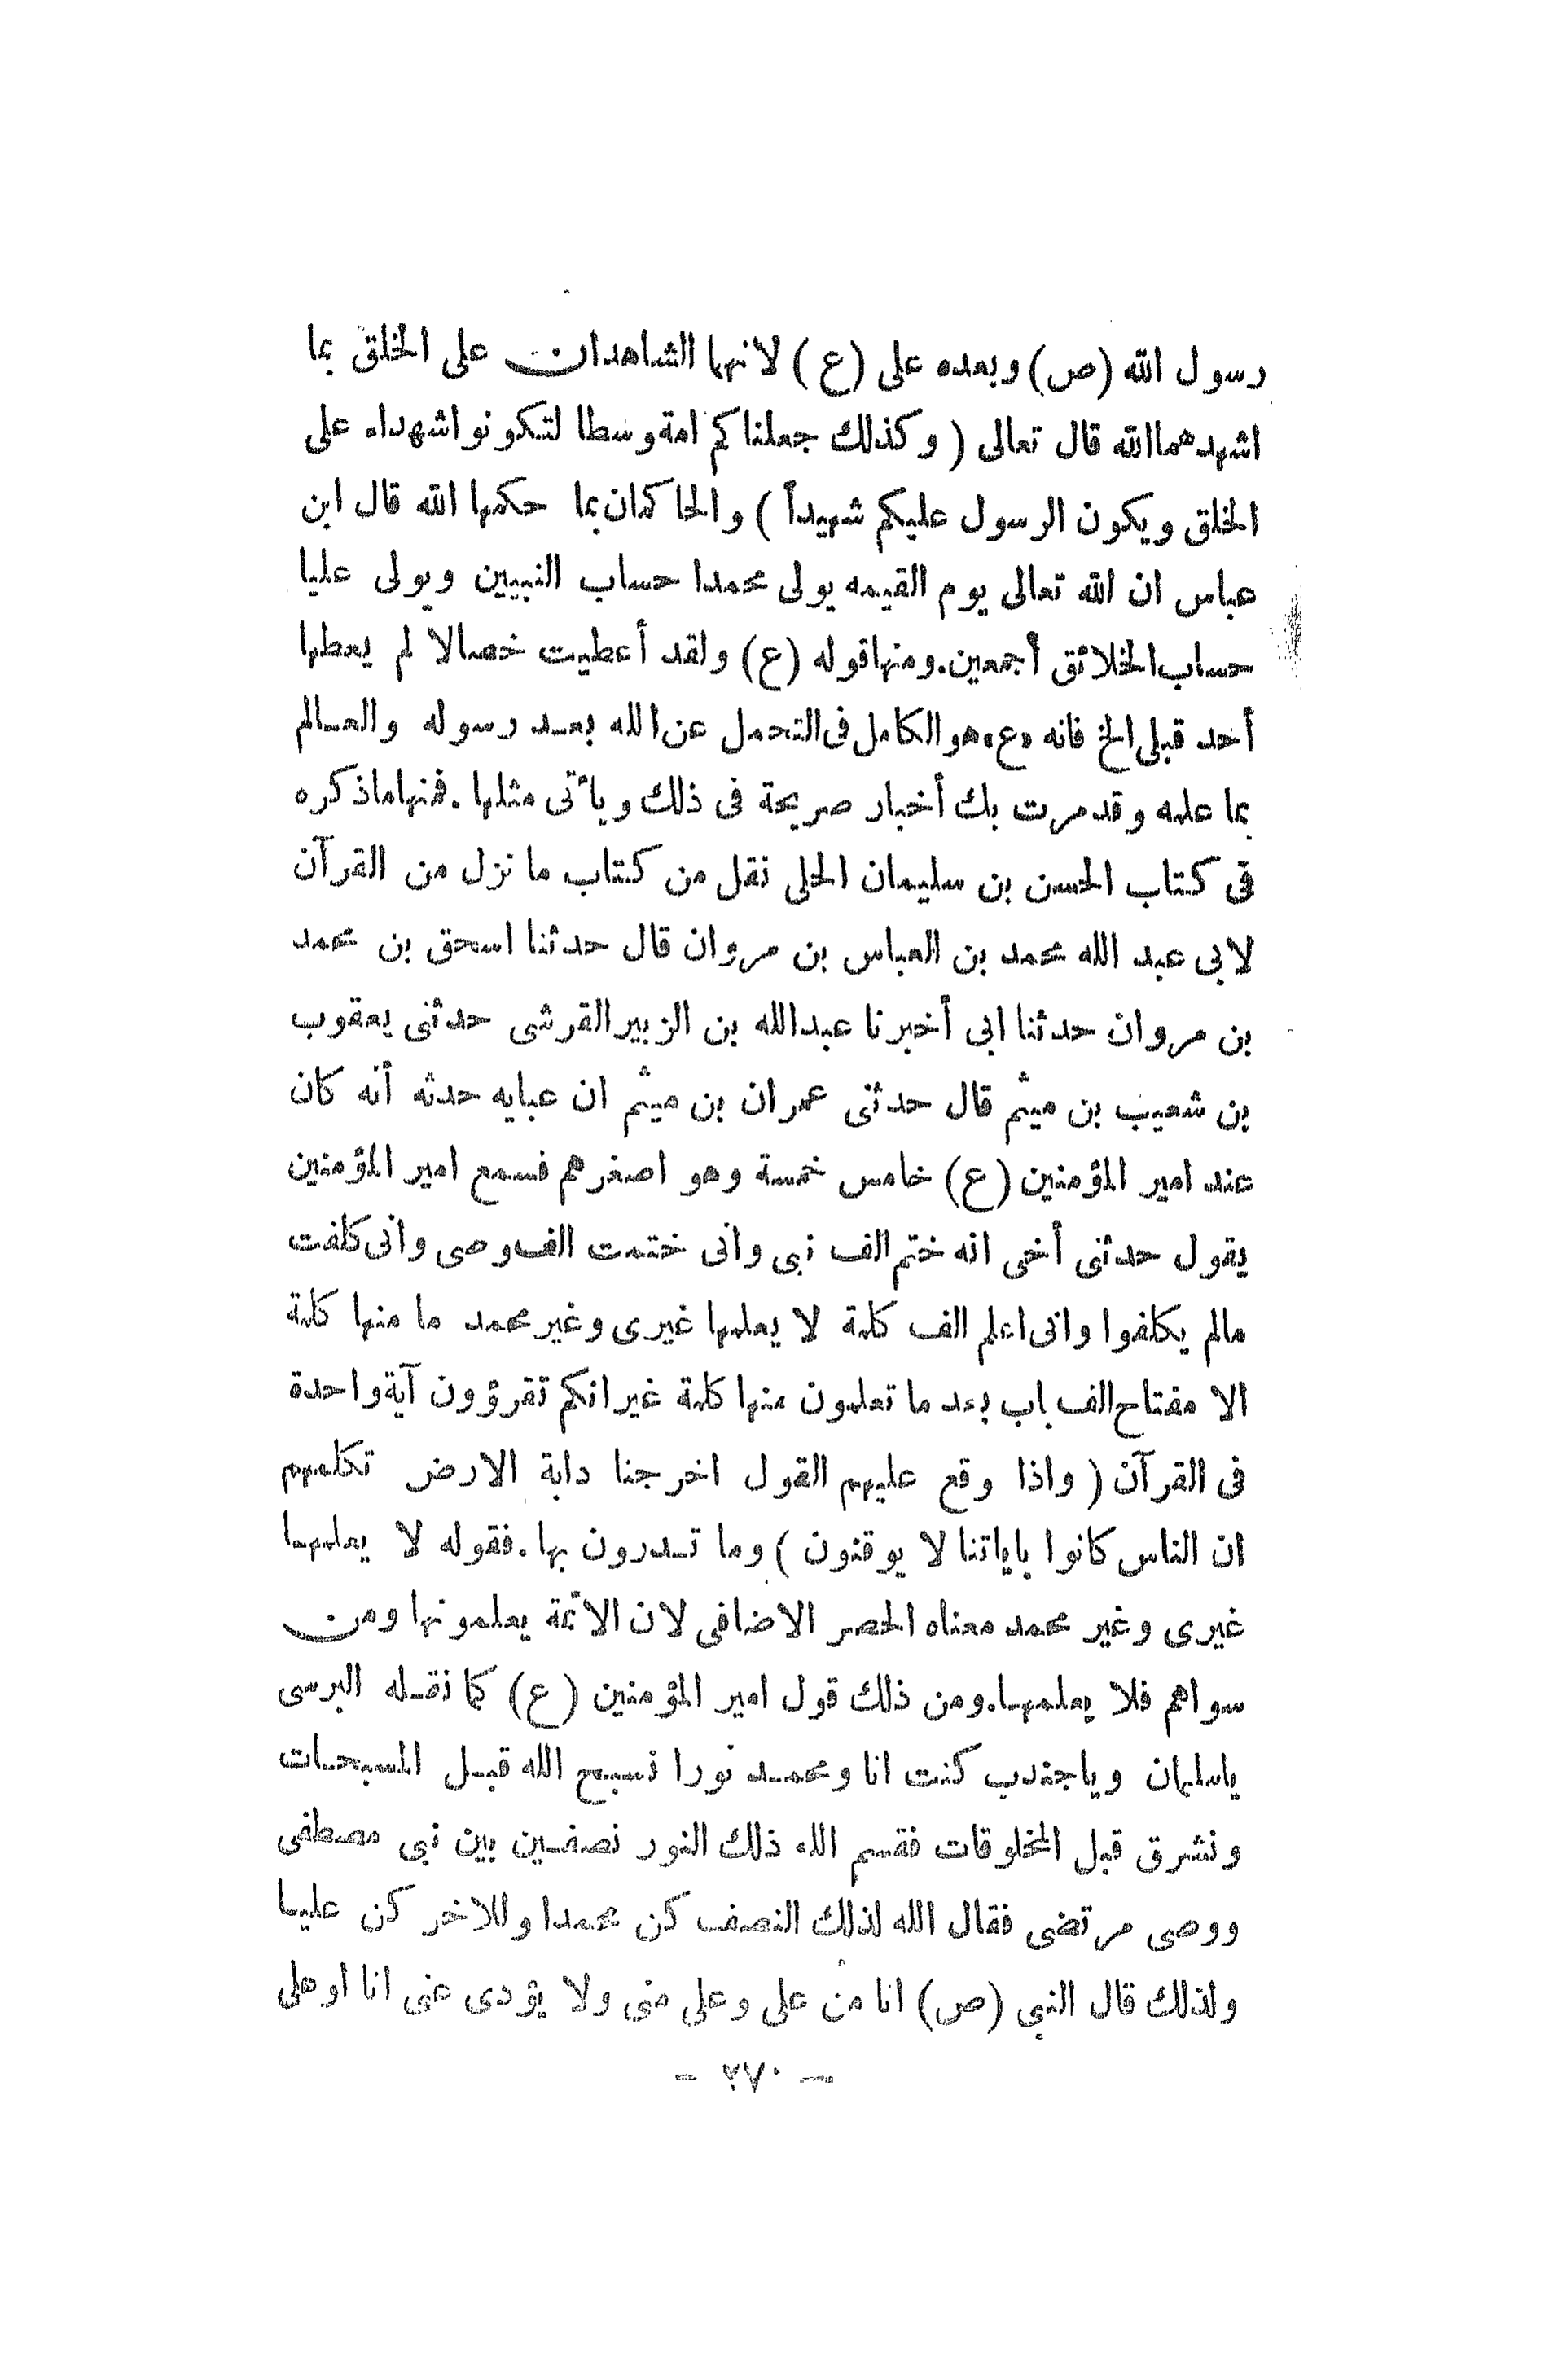 رسول الله (ص) وبعده على (ع) لانهما الشاهدان على الخلق بما
اشهدهما الله قال تعالى ( وكذلك جعلناكم امة وسطا لتكونوا شهداء على
الخلق ويكون الرسول عليكم شهيداً ) والحاكمان بما حكمها الله قال ابن
عباس ان الله تعالى يوم القيمه يولى محمدا حساب النبيين ويولى عليا
حساب الخلائق أجمعين. ومنها قوله (ع) ولقد أعطيت خصالا لم يعطها
أحد قبلى الخ فانه «ع» هو الكامل فى التحمل عن الله بعد رسوله والعالم
بما علمه وقد مرت بك أخبار صريحة فى ذلك ويأتى مثلها . فمنها ماذكره
فى كتاب الحسن بن سليمان الحلى نقل من كتاب ما نزل من القرآن
لابى عبد الله محمد بن العباس بن مروان قال حدثنا اسحق بن محمد
بن مروان حدثنا ابى أخبرنا عبدالله بن الزبير القرشى حدثنى يعقوب
بن شعيب بن ميثم قال حدثنى عمران بن ميثم ان عبايه حدثه أنه كان
عند امير المؤمنين (ع) خامس خمسة وهو اصغرهم فسمع امير المؤمنين
يقول حدثنى أخى انه ختم الف نبى وانى ختمت الف وصى وانى كلفت
مالم يكلفوا وانى اعلم الف كلمة لا يعلمها غيرى وغير محمد ما منها كلمة
الا مفتاح الف باب بعد ما تعلمون منها كلمة غير انكم تقرؤون آية واحدة
فى القرآن ( واذا وقع عليهم القول اخرجنا دابة الارض تكلمهم
ان الناس كانوا باياتنا لا يوقنون ) وما تدرون بها . فقوله لا يعلمها
غيرى وغير محمد معناه الحصر الاضافى لان الائمة يعلمونها ومن
سواهم فلا يعلمها. ومن ذلك قول امير المؤمنين (ع) كما نقله البرسى
ياسلمان وياجندب كنت انا ومحمد نورا نسبح الله قبل المسبحات
ونشرق قبل المخلوقات فقسم الله ذلك النور نصفين بين نبى مصطفى
ووصى مرتضى فقال الله لذلك النصف كن محمدا وللاخر كن عليا
ولذلك قال النبى (ص) انا من على وعلى منى ولا يؤدى عنى انا او على
- ٢٧٠ -